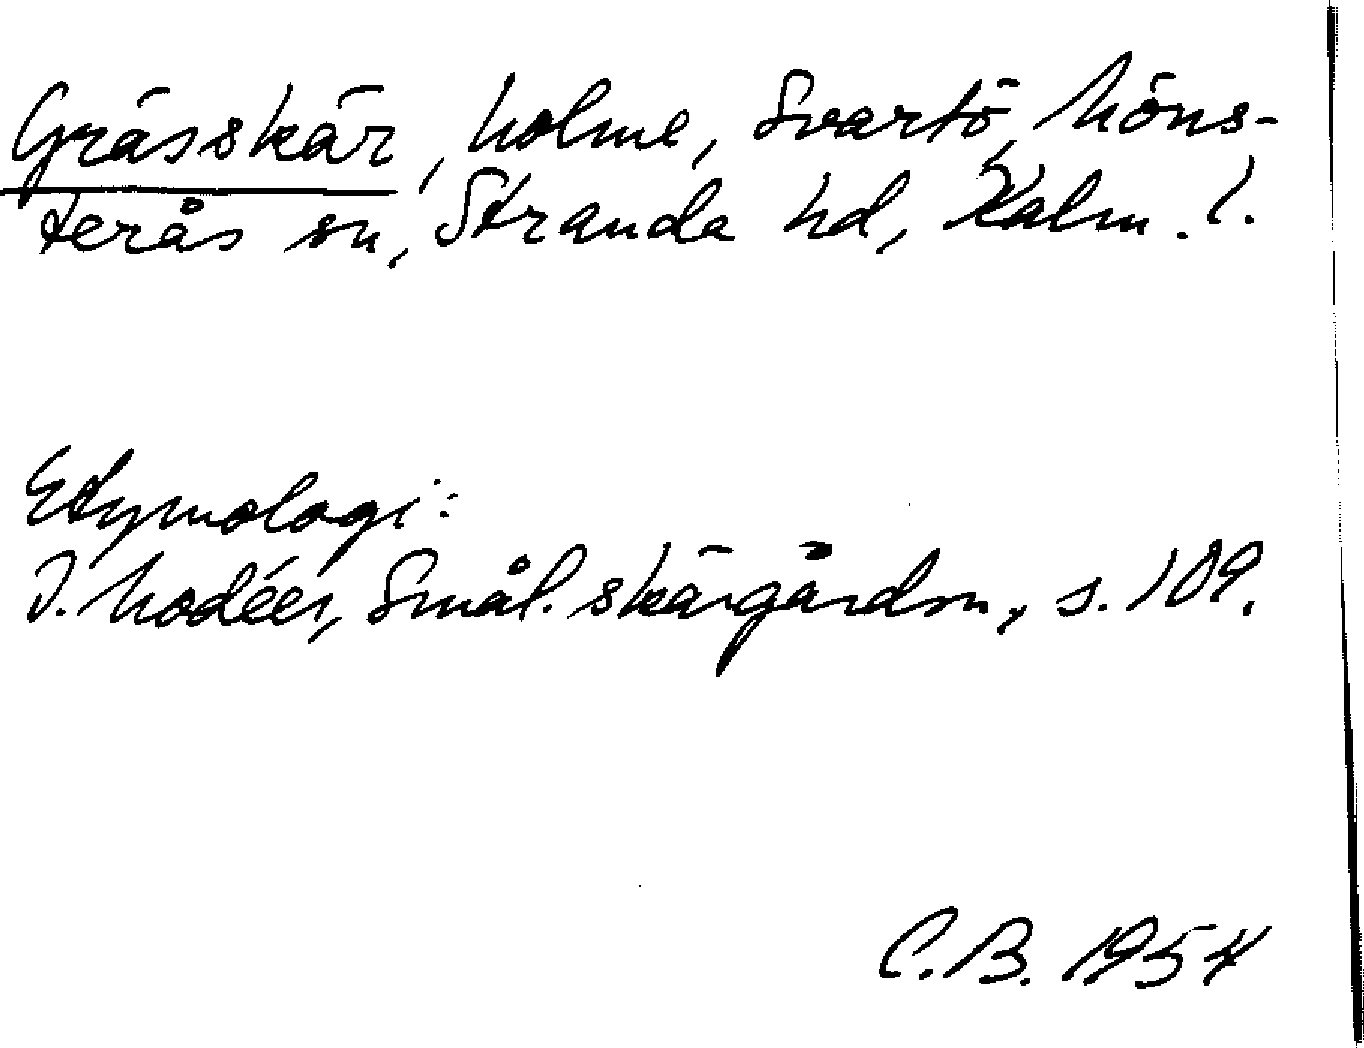 Grässkär, holme, Svartö, Möns-
terås sn, Stranda hd, Kalm. l.
Etymologi:
I. Modéer, Smål. skärgårdsn., s. 109.
C.B. 1954